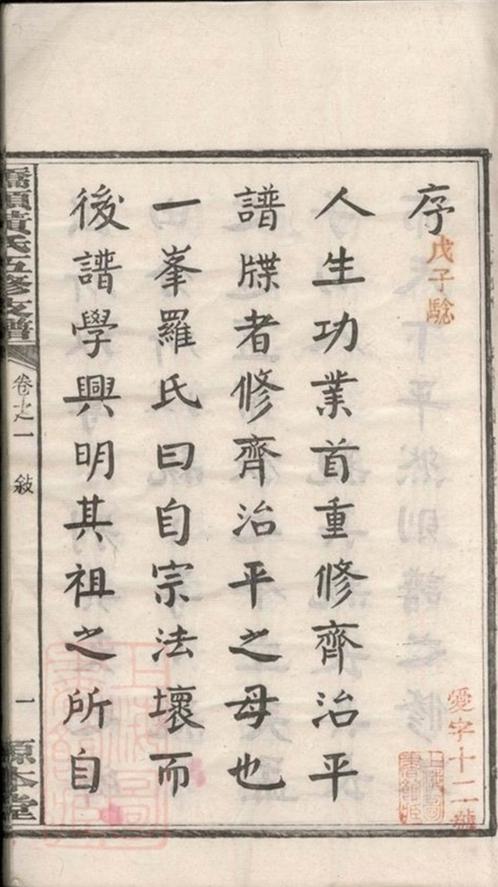 序
戊子騐
人生功業首重修齊治平
譜牒者修齊治平之母也
一峯羅氏曰自宗法壞而
後譜學興明其祖之所自
黃氏五修支譜
卷之一
敘
一
源本堂
愛字十二號